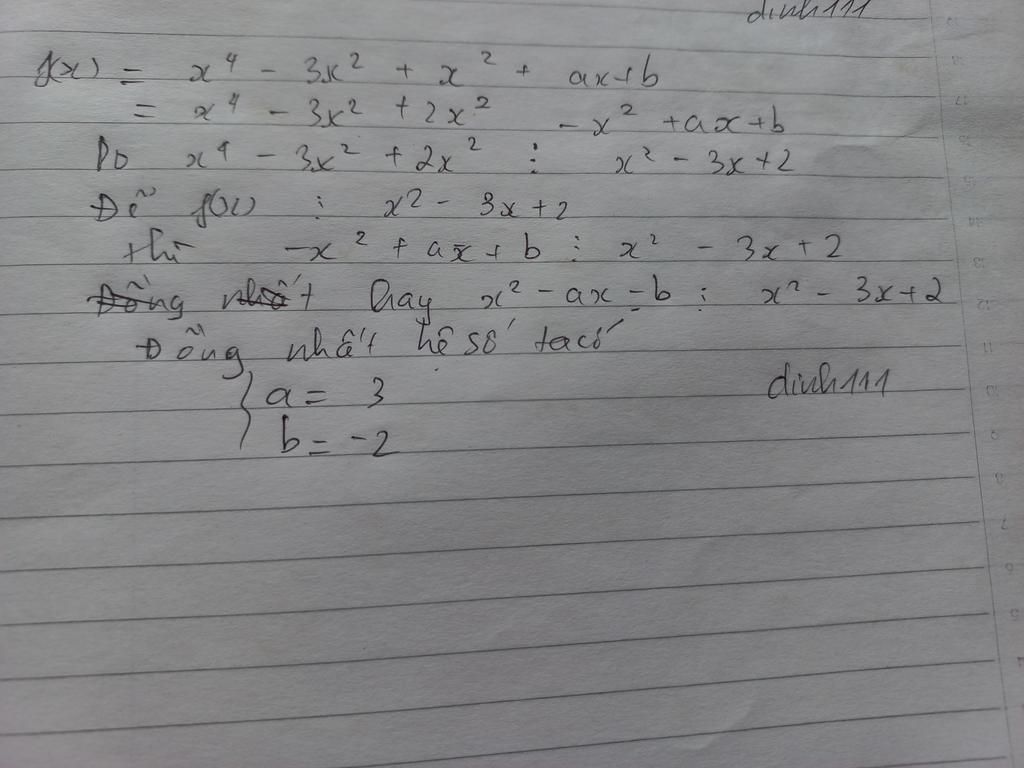 dinh111
f(x) = x⁴ - 3x² + x² + ax+b
= x⁴ - 3x² + 2x² - x² + ax + b
Do x⁴ - 3x² + 2x² ⋮ x² - 3x + 2
Để f(x) ⋮ x² - 3x + 2
thì -x² + ax + b ⋮ x² - 3x + 2
Đồng nhất hay x² - ax - b ⋮ x² - 3x + 2
Đồng nhất hệ số ta có
{ a = 3
b = -2
dinh111